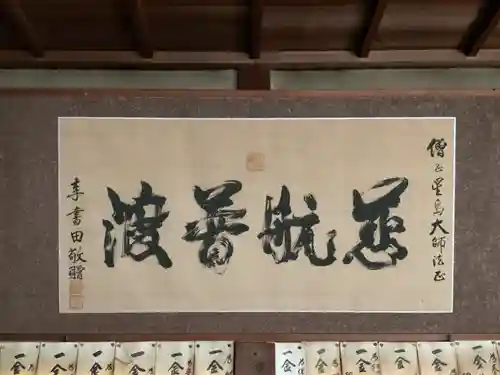 僧正星島大師法正
慈航普渡
李書田敬贈
一金
一金
一金
一金
一金
一金
一金
一金
一金
一金
一金
一金